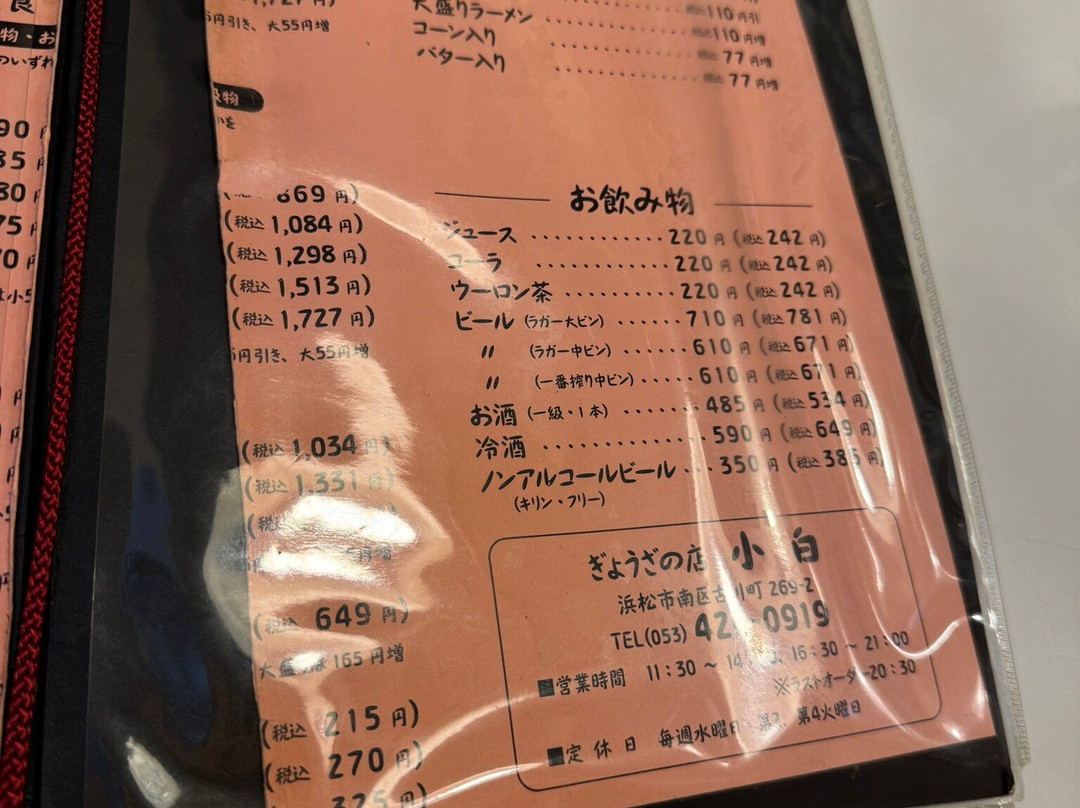 食
物・お
のいずれ
90 円
85 円
80 円
75 円
70 円
1,727 円)
円引き、大55円増
大盛りラーメン 税込110円引
コーン入り 税込110円増
バター入り 税込 77円増
税込 77円増
物
を
869 円)
(税込 1,084 円)
(税込 1,298 円)
(税込 1,513 円)
(税込 1,727 円)
円引き、大55円増
(税込 1,034 円)
(税込 1,331 円)
(税込
円増
(税込 649 円)
大盛 は 165 円増
(税込 215 円)
(税込 270 円)
325 円)
お飲み物
ジュース ············ 220 円 (税込 242 円)
コーラ ············ 220 円 (税込 242 円)
ウーロン茶 ·········· 220 円 (税込 242 円)
ビール (ラガー大ビン) ······ 710 円 (税込 781 円)
〃 (ラガー中ビン) ······ 610 円 (税込 671 円)
〃 (一番搾り中ビン) ····· 610 円 (税込 671 円)
お酒 (一級・1本) ······· 485 円 (税込 534 円)
冷酒 ·············· 590 円 (税込 649 円)
ノンアルコールビール ··· 350 円 (税込 385 円)
(キリン・フリー)
ぎょうざの店 小 白
浜松市南区古川町 269-2
TEL(053) 42 -0919
■営業時間 11:30 ~ 14 0、16:30 ~ 21:00
※ラストオーダー20:30
■定 休 日 毎週水曜日・第2、第4火曜日